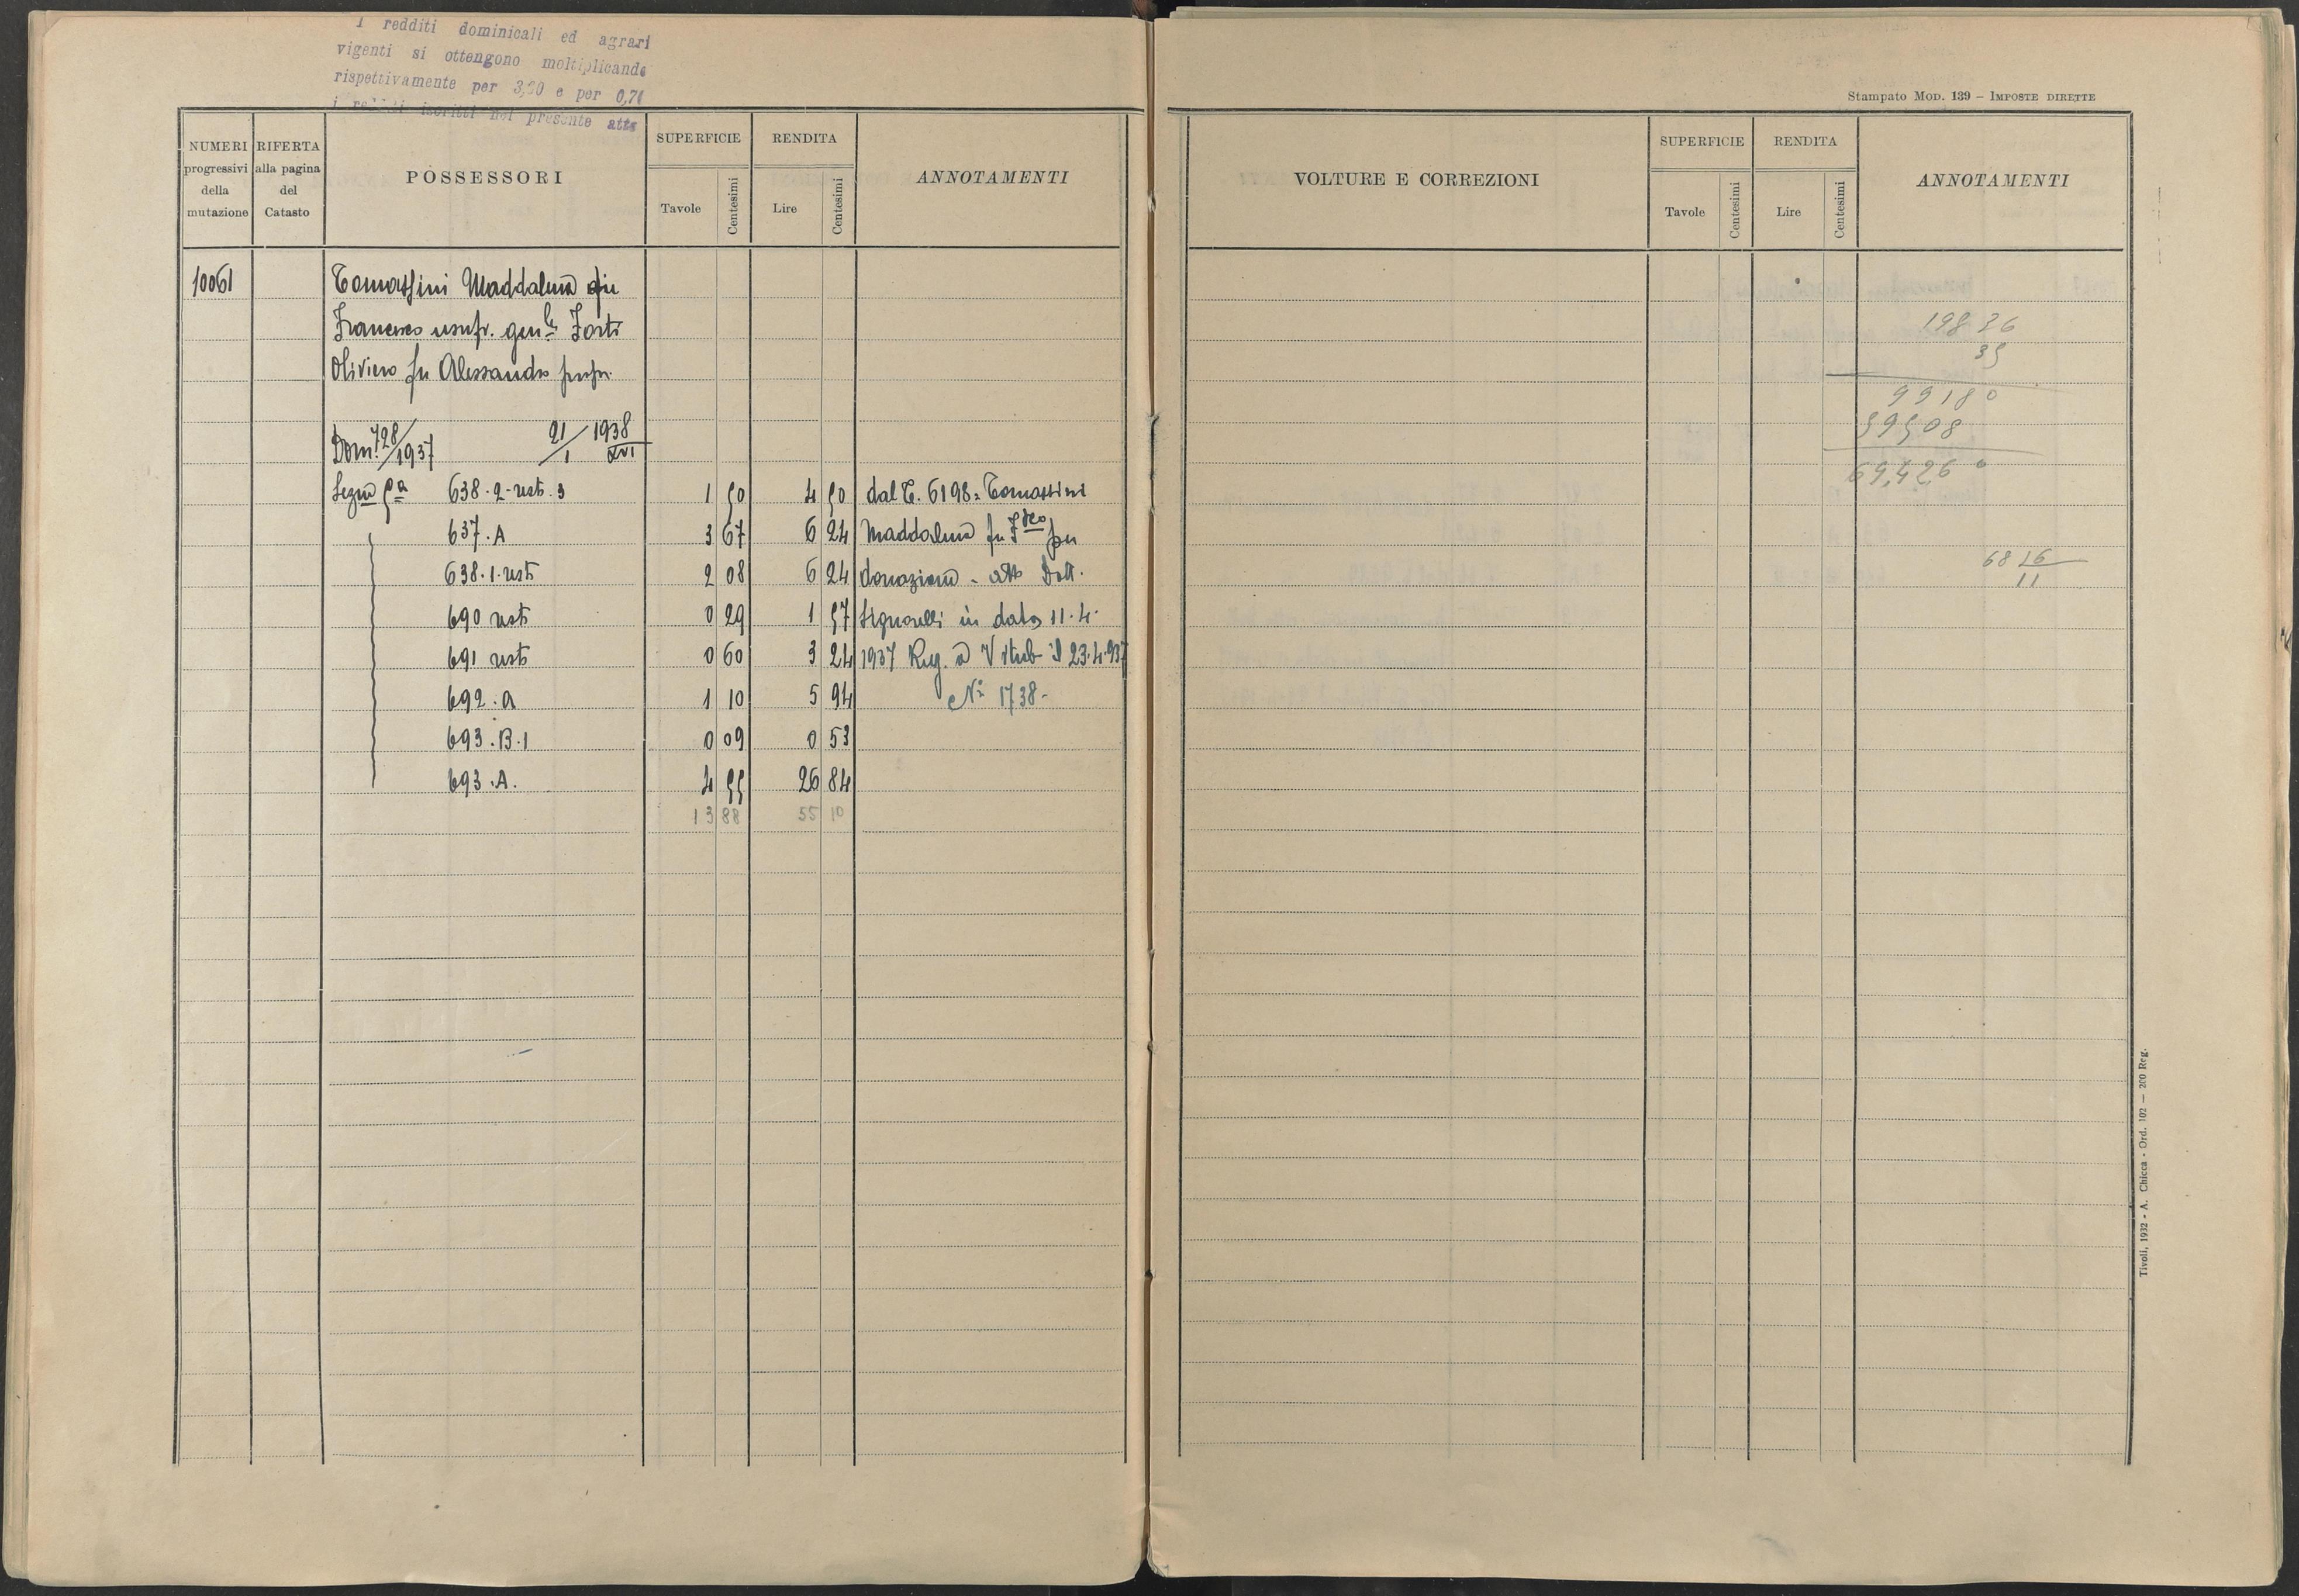 I redditi dominicali ed agrari
vigenti si ottengono moltiplicando
rispettivamente per 3,30 e per 0,70
i redditi iscritti nel presente atto
NUMERI progressivi della mutazione
RIFERTA alla pagina del Catasto
POSSESSORI
SUPERFICIE
Tavole Centesimi
RENDITA
Lire Centesimi
ANNOTAMENTI
10061 Tomassini Maddalena fu
Francesco usufr. gen.le Forti
Oliviero fu Alessandro propr.
Dom. 728/1937 21/1 1938 XVI
Sezne 5a 638.2 rest. 3 1 50 4 50 dal C. 6198 = Tomassini
637.A 3 67 6 24 Maddalena fu Fsco per
638.1.rest 2 08 6 24 donazione - atto Dott.
690 rest 0 29 1 57 Signorelli in data 11.4.
691 rest 0 60 3 24 1937 Reg. a Viterb il 23.4.937
692.a 1 10 5 94 N° 1738-
693.B.1 0 09 0 53
693.A. 4 55 26 84
13 88 55 10
Stampato MOD. 139 – IMPOSTE DIRETTE
VOLTURE E CORREZIONI
SUPERFICIE
Tavole Centesimi
RENDITA
Lire Centesimi
ANNOTAMENTI
198 36
35
99180
59508
69,426 0
68 26
11
Tivoli, 1932 - A. Chicca - Ord. 102 — 200 Reg.